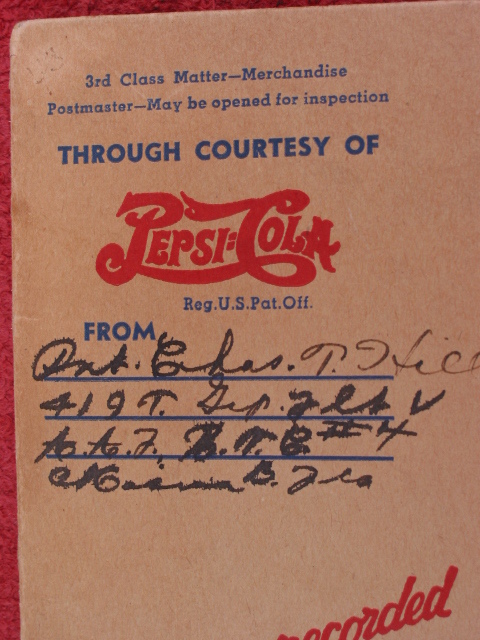 3rd Class Matter—Merchandise
Postmaster—May be opened for inspection
THROUGH COURTESY OF
PEPSI:COLA
Reg.U.S.Pat.Off.
FROM
Pvt. Chas. T. Hill
419 T. Gp. Flt V
A.A.F. B.T.C #4
Miami B. Fla
recorded